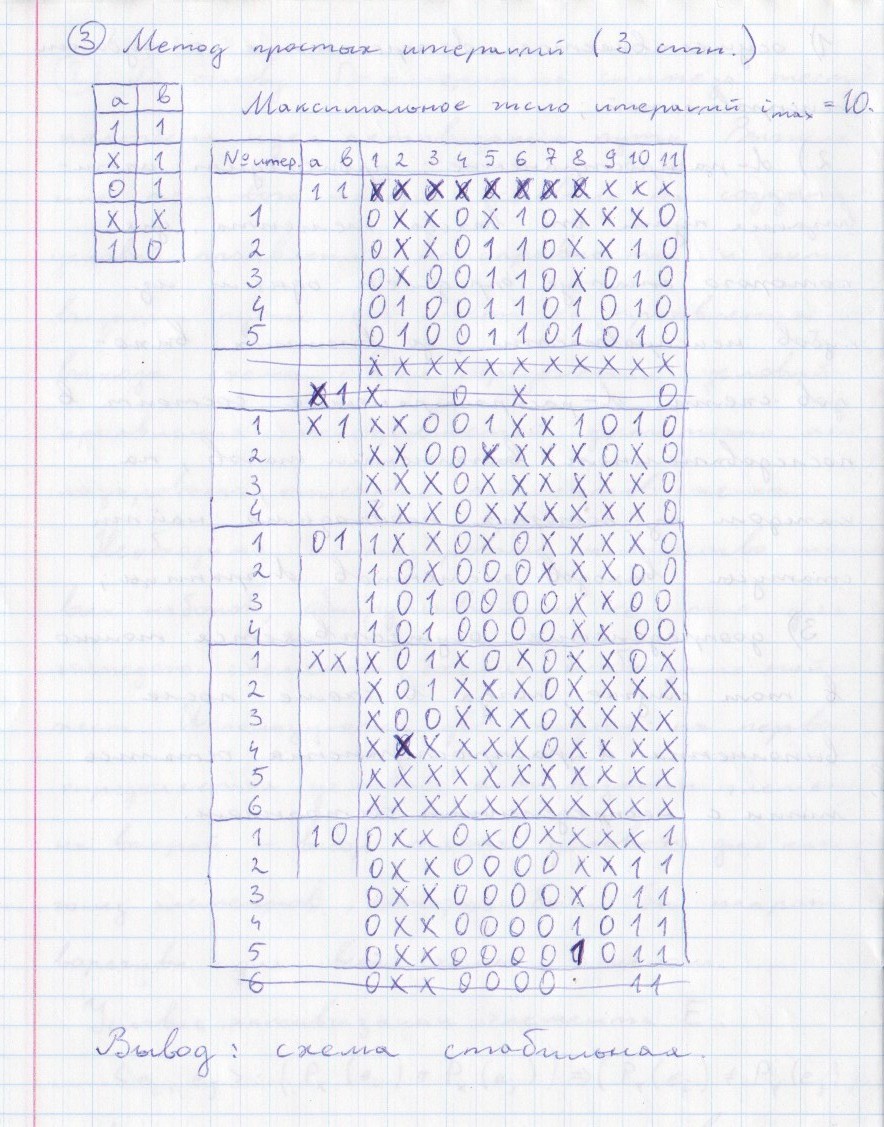 ③ Метод простых итераций (3 сигн.)
Максимальное число итераций imax = 10.
а в
1 1
x 1
0 1
x x
1 0
№ итер. а в 1 2 3 4 5 6 7 8 9 10 11
1 1 x x x x x x x x x x x
1 0 x x 0 x 1 0 x x x 0
2 0 x x 0 1 1 0 x x 1 0
3 0 x 0 0 1 1 0 x 0 1 0
4 0 1 0 0 1 1 0 1 0 1 0
5 0 1 0 0 1 1 0 1 0 1 0
x x x x x x x x x x x
x 1 x 0 x 0
1 x 1 x x 0 0 1 x x 1 0 1 0
2 x x 0 0 x x x x 0 x 0
3 x x x 0 x x x x x x 0
4 x x x 0 x x x x x x 0
1 0 1 1 x x 0 x 0 x x x x 0
2 1 0 x 0 0 0 x x x 0 0
3 1 0 1 0 0 0 0 x x 0 0
4 1 0 1 0 0 0 0 x x 0 0
1 x x x 0 1 x 0 x 0 x x 0 x
2 x 0 1 x x x 0 x x x x
3 x 0 0 x x x 0 x x x x
4 x x x x x x 0 x x x x
5 x x x x x x x x x x x
6 x x x x x x x x x x x
1 1 0 0 x x 0 x 0 x x x x 1
2 0 x x 0 0 0 0 x x 1 1
3 0 x x 0 0 0 0 x 0 1 1
4 0 x x 0 0 0 0 1 0 1 1
5 0 x x 0 0 0 0 1 0 1 1
6 0 x x 0 0 0 0 1 1
Вывод: схема стабильная.